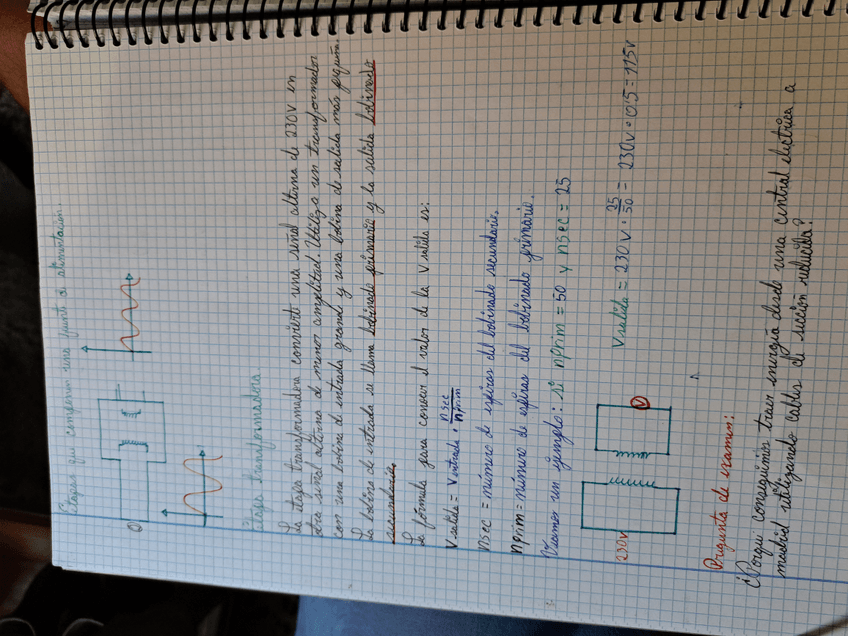 Etapas que componen una fuente de alimentación.
Etapa transformadora
La etapa transformadora convierte una señal alterna de 230V en
otra señal alterna de menor amplitud. Utiliza un transformador
con una bobina de entrada grande y una bobina de salida más pequeña
La bobina de entrada se llama bobinado primario y la salida bobinado
secundario.
La fórmula para conocer el valor de la V salida es:
V salida = V entrada · nsec/nprim
nsec = número de espiras del bobinado secundario.
nprim = número de espiras del bobinado primario.
Veamos un ejemplo: si nprim = 50 y nsec = 25
230V
V
V salida = 230V · 25/50 = 230V · 0'5 = 115V
Pregunta de examen:
¿Porqué conseguimos traer energía desde una central electrica a
madrid utilizando cables de sección reducida?